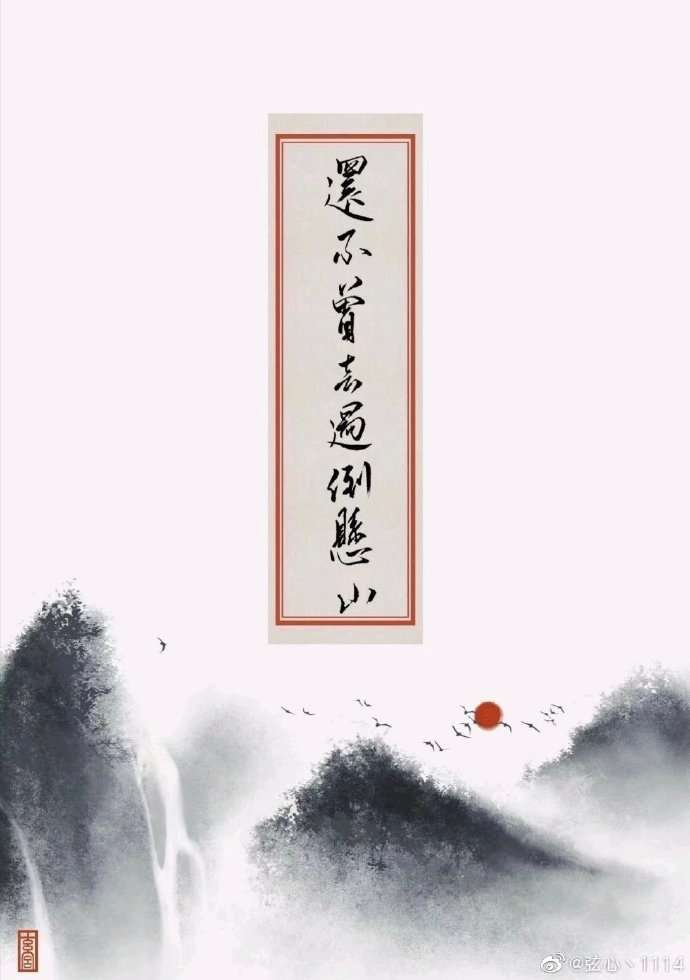 還不曾去過倒懸山
@弦心丶1114